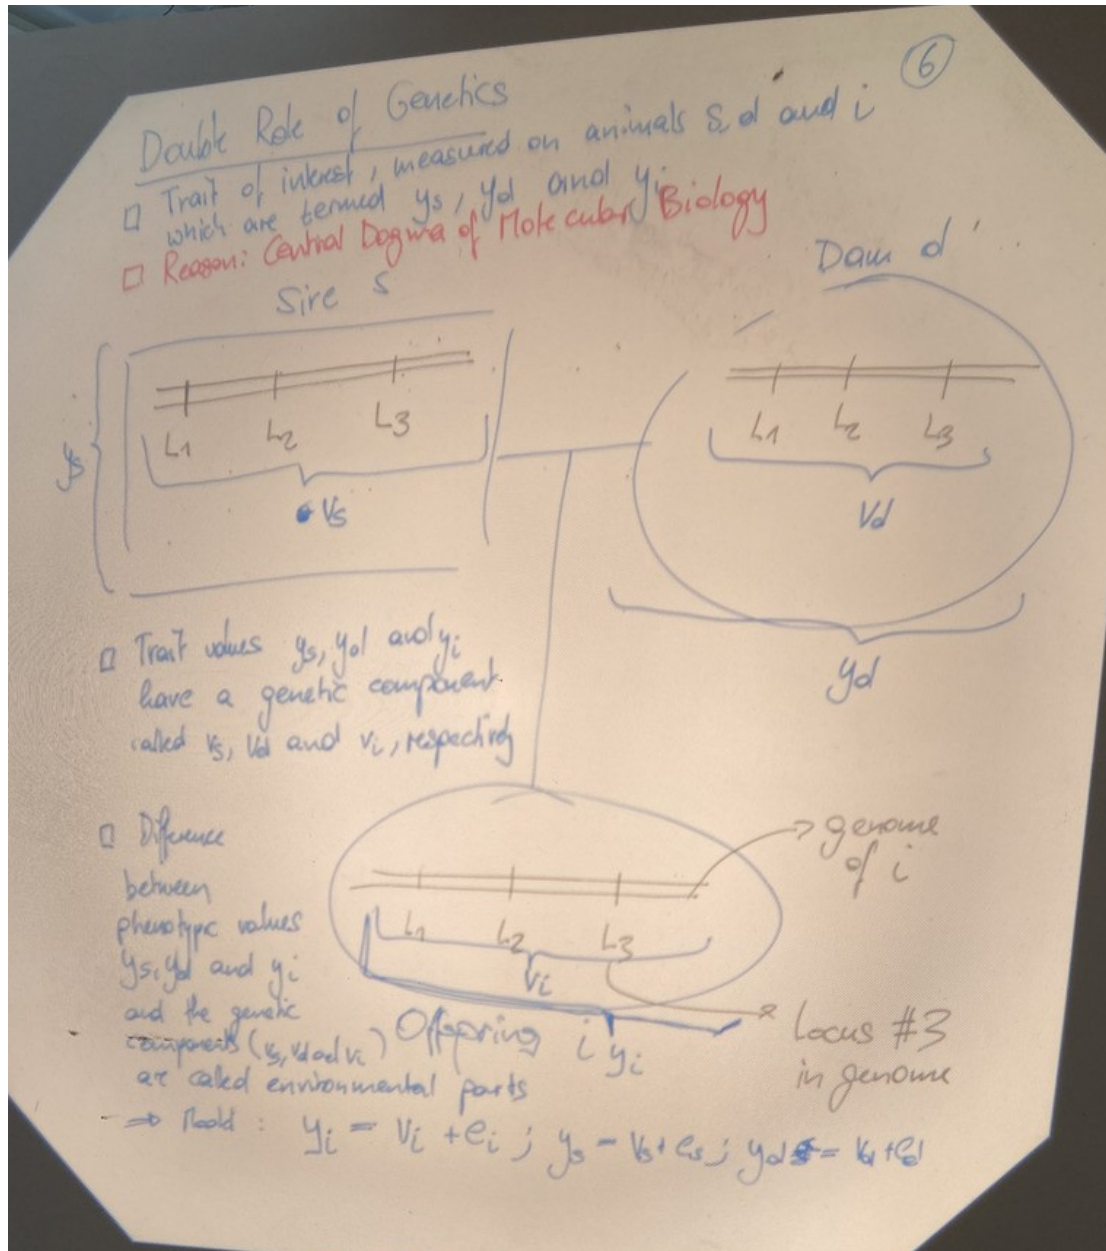 6
Double Role of Genetics
□ Trait of interest, measured on animals s, d and i
which are termed ys, yd and yi
□ Reason: Central Dogma of Molecular Biology
Sire s
Dam d
L1 L2 L3
ys
vs
L1 L2 L3
Vd
yd
□ Trait values ys, yd and yi
have a genetic component
called vs, vd and vi,
□ Difference
between
phenotypic values
ys, yd and yi
and the genetic
components (vs, vd and vi)
are called environmental parts
genome
of i
L1 L2 L3
Vi
Offspring i yi
Locus #3
in genome
yi = vi + ei ; ys = vs + es ; yd = vd + ed